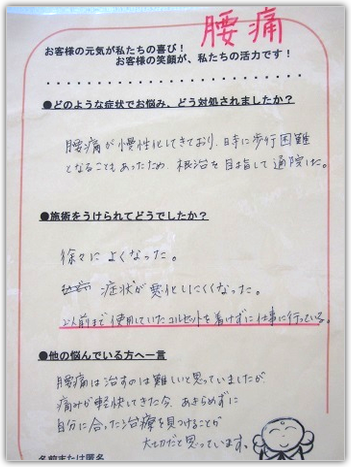 腰痛
お客様の元気が私たちの喜び！
お客様の笑顔が、私たちの活力です！
●どのような症状でお悩み、どう対処されましたか？
腰痛が慢性化してきており、日常に歩行困難
となることもあったため、根治を目指して通院した。
●施術をうけられてどうでしたか？
徐々によくなった。
症状が悪化しにくくなった。
以前まで使用していたコルセットを着けずに仕事に行っている。
●他の悩んでいる方へ一言
腰痛は治すのは難しいと思っていましたが
痛みが軽快してきた今、あきらめずに
自分に合った治療を見つけることが
大切だと思っています。
名前または匿名